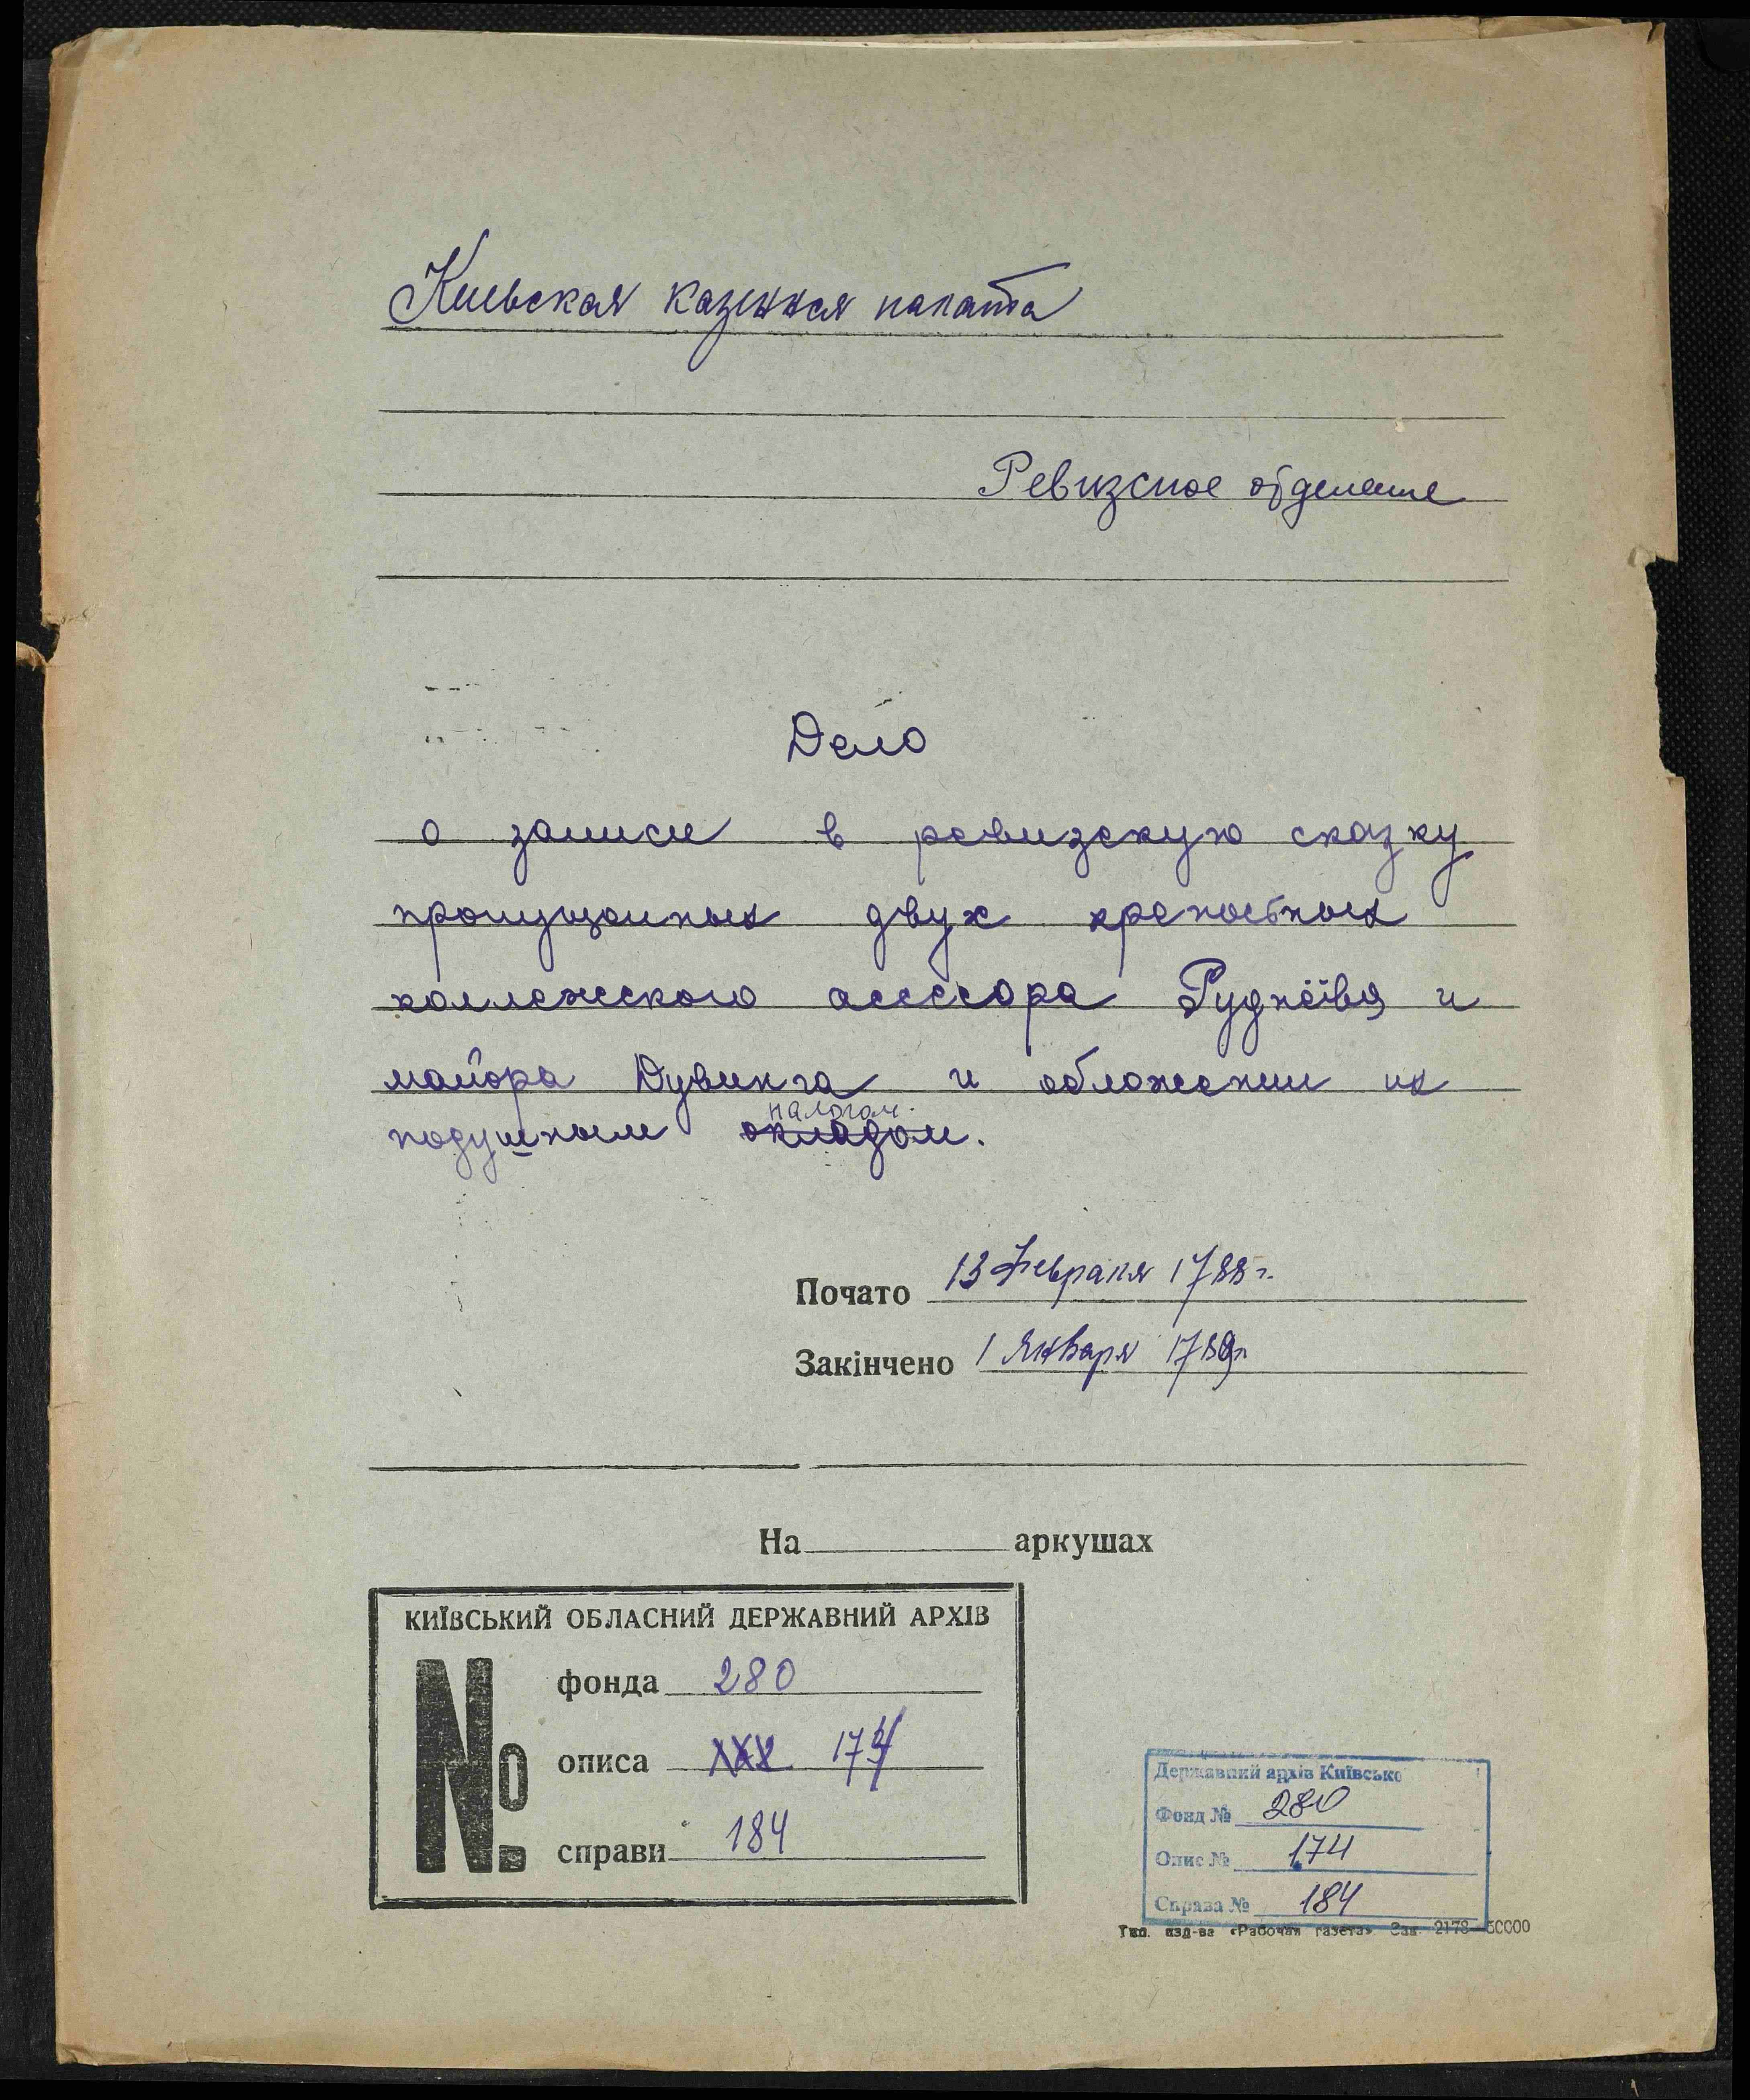 Киевская казенная палата
Ревизское отделение
Дело
о записи в ревизскую сказку
пропущенных двух крепостных
коллежского асессора и
майора Дувинга и обложении их
налогом.
подушным окладом.
Почато 13 февраля 1788 г.
Закінчено 1 января 1789 г.
На аркушах
КИЇВСЬКИЙ ОБЛАСНИЙ ДЕРЖАВНИЙ АРХІВ
№
фонда 280
описа 174
справи 184
Державний архів Київсько
Фонд № 280
Опис № 174
Справа № 184
Тип. изд-ва «Рабочая газета» Зак. 2178—50000